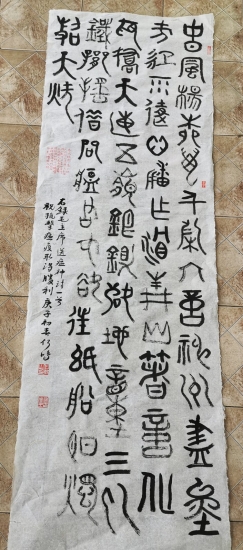 春風楊柳萬千條六億神州盡舜
堯紅雨隨心翻作浪青山著意化
為橋天連五嶺銀鋤落地動三河
鐵臂搖借問瘟君欲何往紙船明燭
照天燒
右錄毛主席送瘟神詩一首
祝抗擊瘟疫取得勝利庚子初春